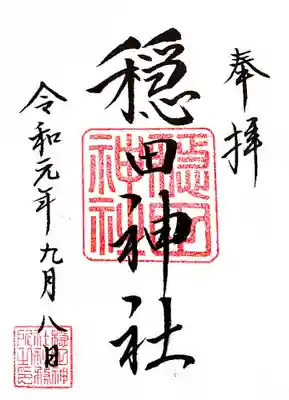 奉拝
穏田神社
穏田神社
令和元年九月八日